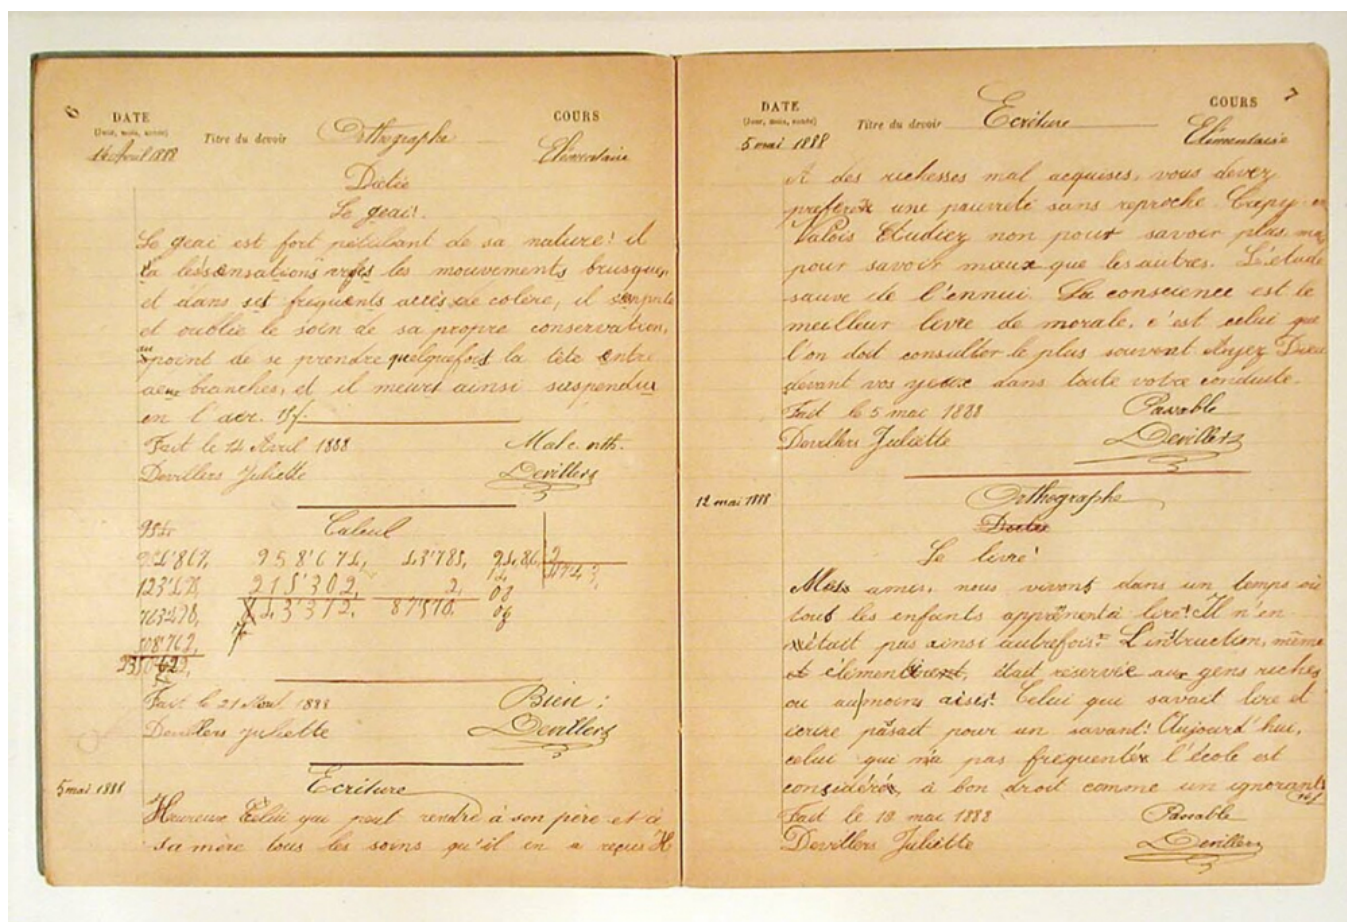 6
DATE
(Jour, mois, année)
Titre du devoir Orthographe
COURS
14 Avril 1888
Elémentaire
Dictée
Le geai.
Le geai est fort pétulant de sa nature! il
a les sensations vives les mouvements brusques
et dans ses fréquents accès de colère, il s'emporte
et oublie le soin de sa propre conservation,
au point de se prendre quelquefois la tête entre
deux branches, et il meurt ainsi suspendu
en l'air.
Fait le 14 Avril 1888
Mal c. orth.
Devillers Juliette
Devillers
Calcul
958'674, 43'785,
215'302, 2,
87'570.
Fait le 21 Avril 1888
Bien :
Devillers Juliette
Devillers
5 mai 1888
Ecriture
Heureux Celui qui peut rendre à son père et à
sa mère tous les soins qu'il en a reçus
7
DATE
(Jour, mois, année)
Titre du devoir Ecriture
COURS
5 mai 1888
Elémentaire
A des richesses mal acquises, vous devez
préférer une pauvreté sans reproche. Crépy en
Valois Etudiez non pour savoir plus, mais
pour savoir mieux que les autres. L'étude
sauve de l'ennui. La conscience est le
meilleur livre de morale, c'est celui que
l'on doit consulter le plus souvent. Ayez Dieu
devant vos yeux dans toute votre conduite.
Fait le 5 mai 1888
Passable
Devillers Juliette
Devillers
12 mai 1888
Orthographe
Dictée
Le livre!
Mes amis, nous vivons dans un temps où
tous les enfants apprennent à lire! Il n'en
était pas ainsi autrefois. L'instruction, même
élémentaire, était réservée aux gens riches
ou au moins aisés! Celui qui savait lire et
écrire passait pour un savant! Aujourd'hui,
celui qui n'a pas fréquenté l'école est
considéré, à bon droit comme un ignorant
Fait le 12 mai 1888
Passable
Devillers Juliette
Devillers